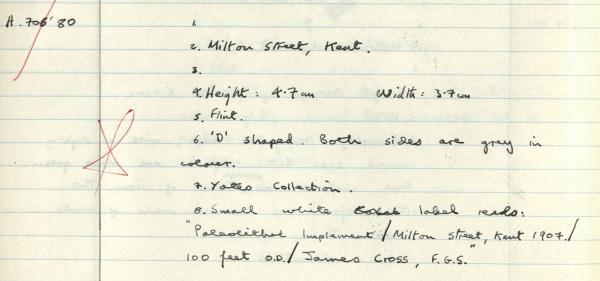 A.706'80
1.
2. Milton Street, Kent.
3.
4. Height: 4.7cm Width: 3.7cm
5. Flint.
6. 'D' shaped. Both sides are grey in
colour.
7. Yates Collection.
8. Small white label reads:
"Paleolithic Implement / Milton Street, Kent 1907. /
100 feet O.D. / James Cross, F.G.S."